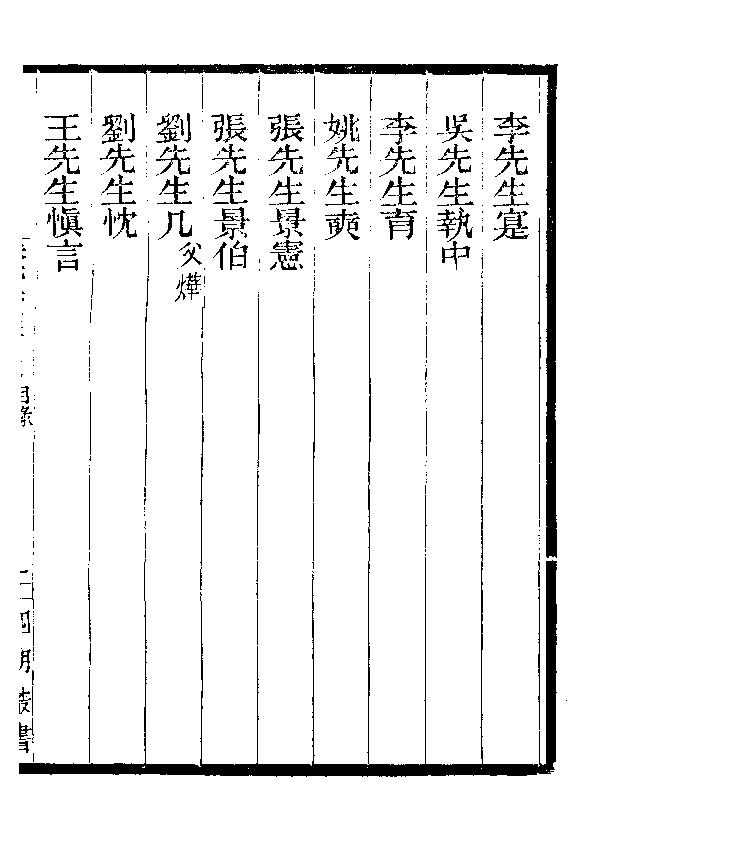 李先生寔
吳先生執中
李先生育
姚先生奭
張先生景憲
張先生景伯
劉先生几 父燁
劉先生忱
王先生愼言
目錄
四明叢書